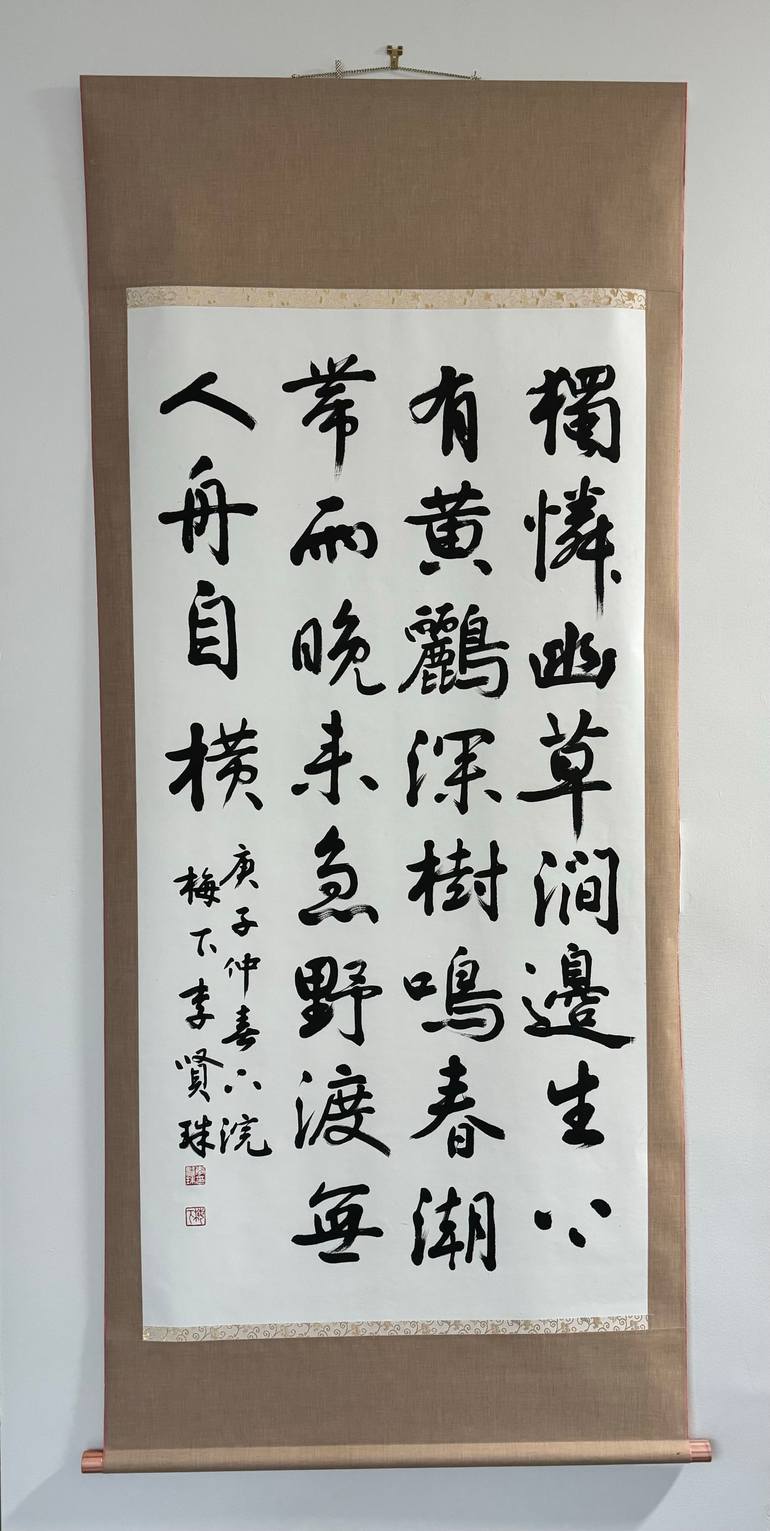 獨憐幽草澗邊生上
有黄鸝深樹鳴春潮
帶雨晚来急野渡無
人舟自横
庚子仲春下浣
梅下李賢珠